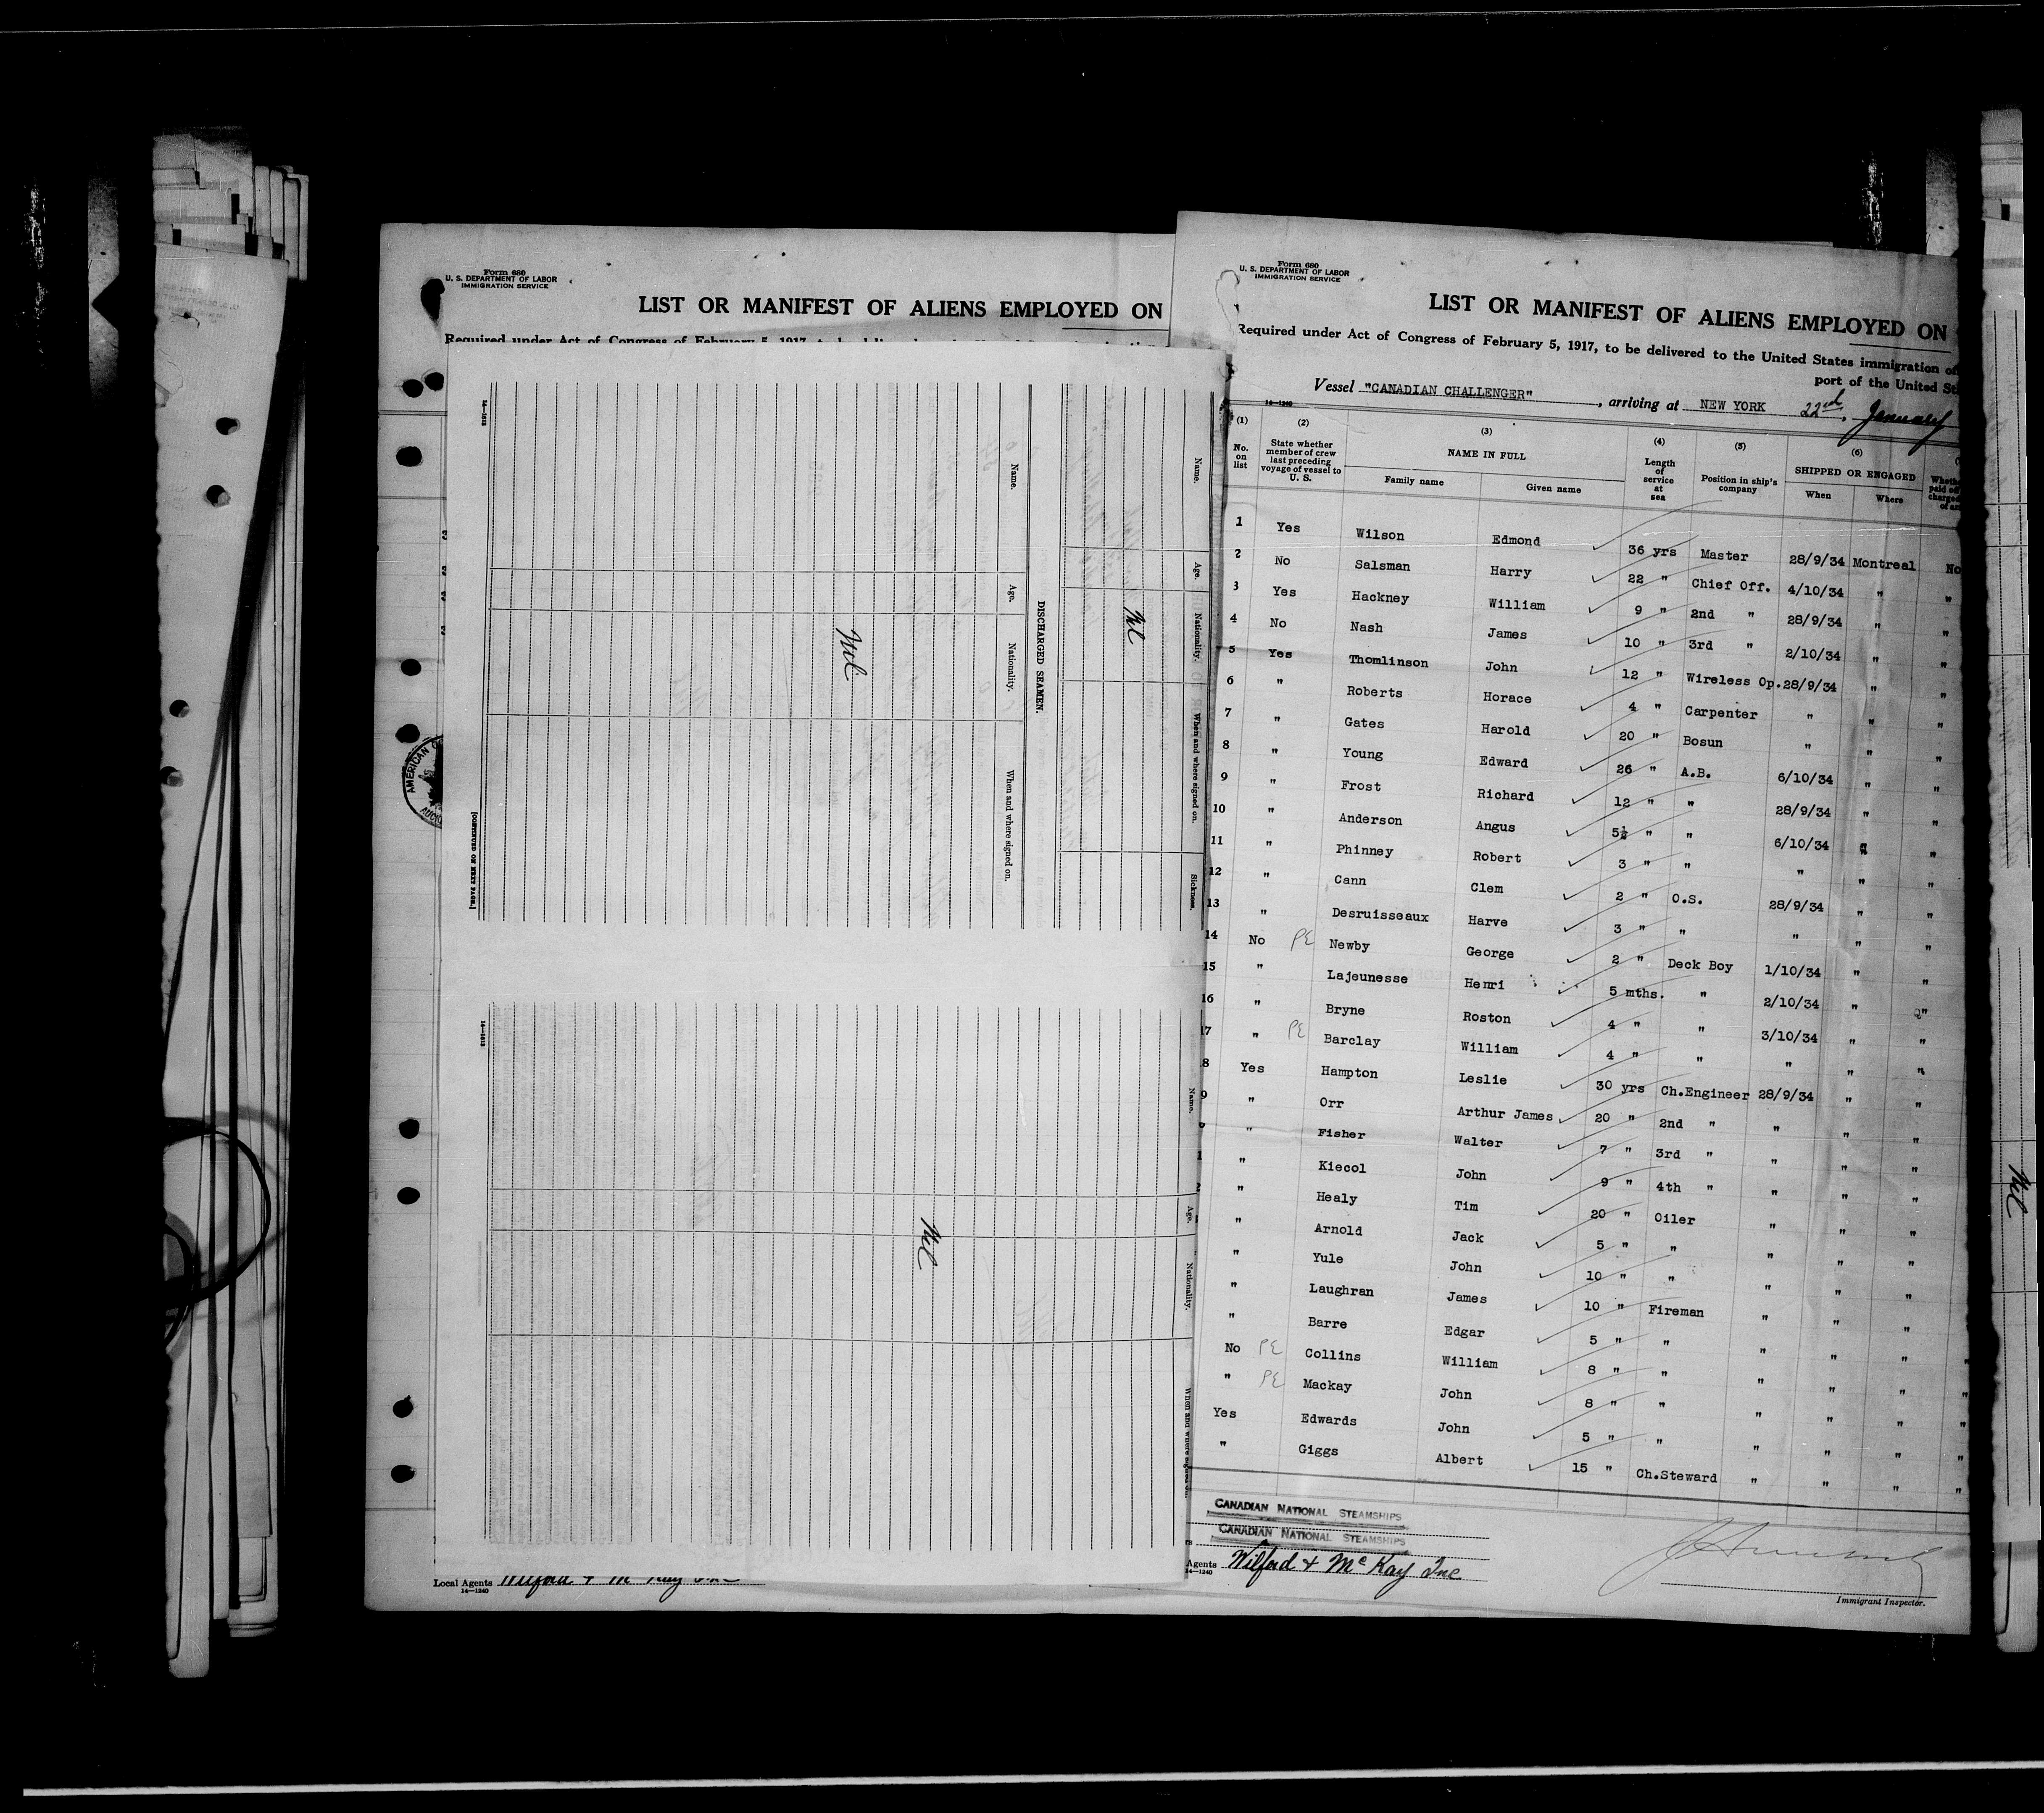 Form 680
U. S. DEPARTMENT OF LABOR
IMMIGRATION SERVICE
LIST OR MANIFEST OF ALIENS EMPLOYED ON
Required under Act of Congress of February 5, 1917, to be delivered
14—1513
Name.
Age.
Nationality.
When and where signed on.
Sickness.
Nil
DISCHARGED SEAMEN.
Name.
Age.
Nationality.
When and where signed on.
Nil
[CONTINUED ON NEXT PAGE.]
14—1513
Name.
Age.
Nationality.
When and where signed on.
Nil
AMERICAN
Local Agents Wilford & McKay Inc
14—1240
Form 680
U. S. DEPARTMENT OF LABOR
IMMIGRATION SERVICE
LIST OR MANIFEST OF ALIENS EMPLOYED ON
Required under Act of Congress of February 5, 1917, to be delivered to the United States immigration
port of the United
Vessel "CANADIAN CHALLENGER", arriving at NEW YORK 22nd, January
14—1240
(1) (2) (3) (4) (5) (6)
No. on list State whether member of crew last preceding voyage of vessel to U. S. NAME IN FULL Family name Given name Length of service at sea Position in ship's company SHIPPED OR ENGAGED When Where
1 Yes Wilson Edmond 36 yrs Master 28/9/34 Montreal No
2 No Salsman Harry 22 " Chief Off. 4/10/34 " "
3 Yes Hackney William 9 " 2nd " 28/9/34 " "
4 No Nash James 10 " 3rd " 2/10/34 " "
5 Yes Thomlinson John 12 " Wireless Op. 28/9/34 " "
6 " Roberts Horace 4 " Carpenter " " "
7 " Gates Harold 20 " Bosun " " "
8 " Young Edward 26 " A.B. 6/10/34 " "
9 " Frost Richard 12 " " 28/9/34 " "
10 " Anderson Angus 5½ " " 6/10/34 " "
11 " Phinney Robert 3 " " " " "
12 " Cann Clem 2 " O.S. 28/9/34 " "
13 " Desruisseaux Harve 3 " " " " "
14 No PE Newby George 2 " Deck Boy 1/10/34 " "
15 " Lajeunesse Henri 5 mths. " 2/10/34 " "
16 " Bryne Roston 4 " " 3/10/34 " "
17 " PE Barclay William 4 " " " " "
8 Yes Hampton Leslie 30 yrs Ch.Engineer 28/9/34 " "
9 " Orr Arthur James 20 " 2nd " " " "
" Fisher Walter 7 " 3rd " " " "
1 " Kiecol John 9 " 4th " " " "
2 " Healy Tim 20 " Oiler " " "
" Arnold Jack 5 " " " " "
" Yule John 10 " " " " "
" Laughran James 10 " Fireman " " "
" Barre Edgar 5 " " " " "
No PE Collins William 8 " " " " "
" PE Mackay John 8 " " " " "
Yes Edwards John 5 " " " " "
" Giggs Albert 15 " Ch.Steward " " "
CANADIAN NATIONAL STEAMSHIPS
CANADIAN NATIONAL STEAMSHIPS
Agents Wilford & McKay Inc
14—1240
Immigrant Inspector.
Nil